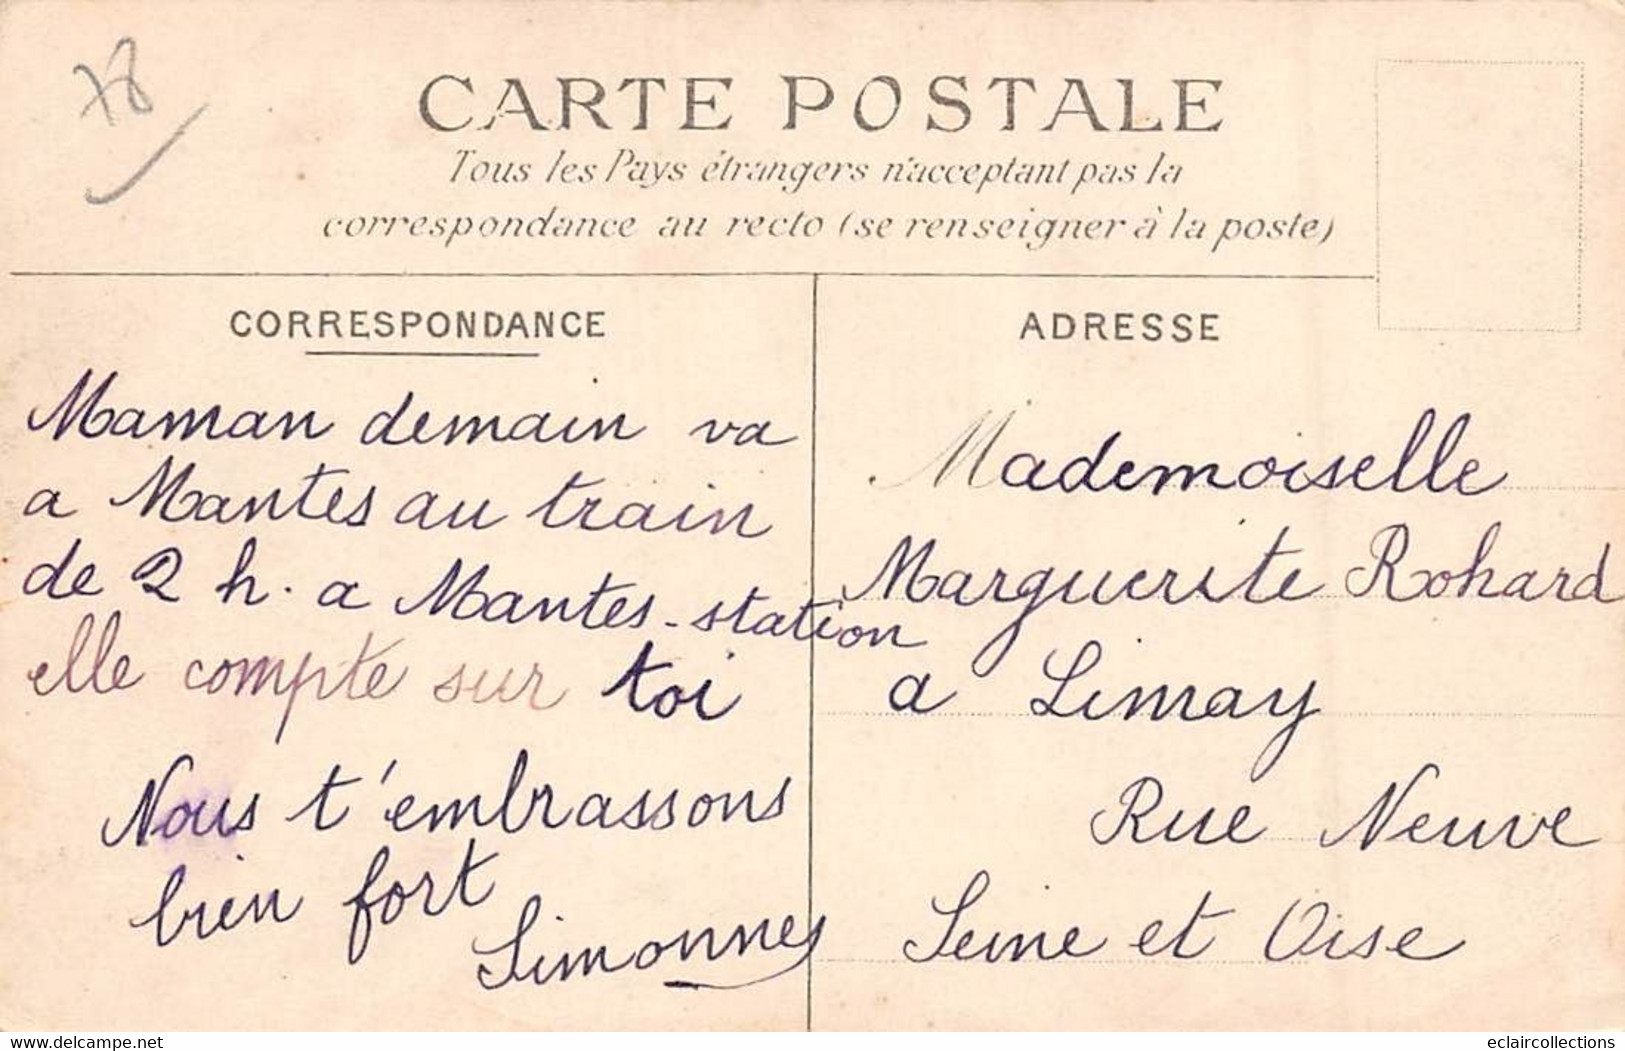 78
CARTE POSTALE
Tous les Pays étrangers n'acceptant pas la
correspondance au recto (se renseigner à la poste)
CORRESPONDANCE
Maman demain va
a Mantes au train
de 2 h. a Mantes-station
elle compte sur toi
Nous t'embrassons
bien fort
Simonnes
ADRESSE
Mademoiselle
Marguerite Rohard
a Limay
Rue Neuve
Seine et Oise
www.delcampe.net
eclaircollections